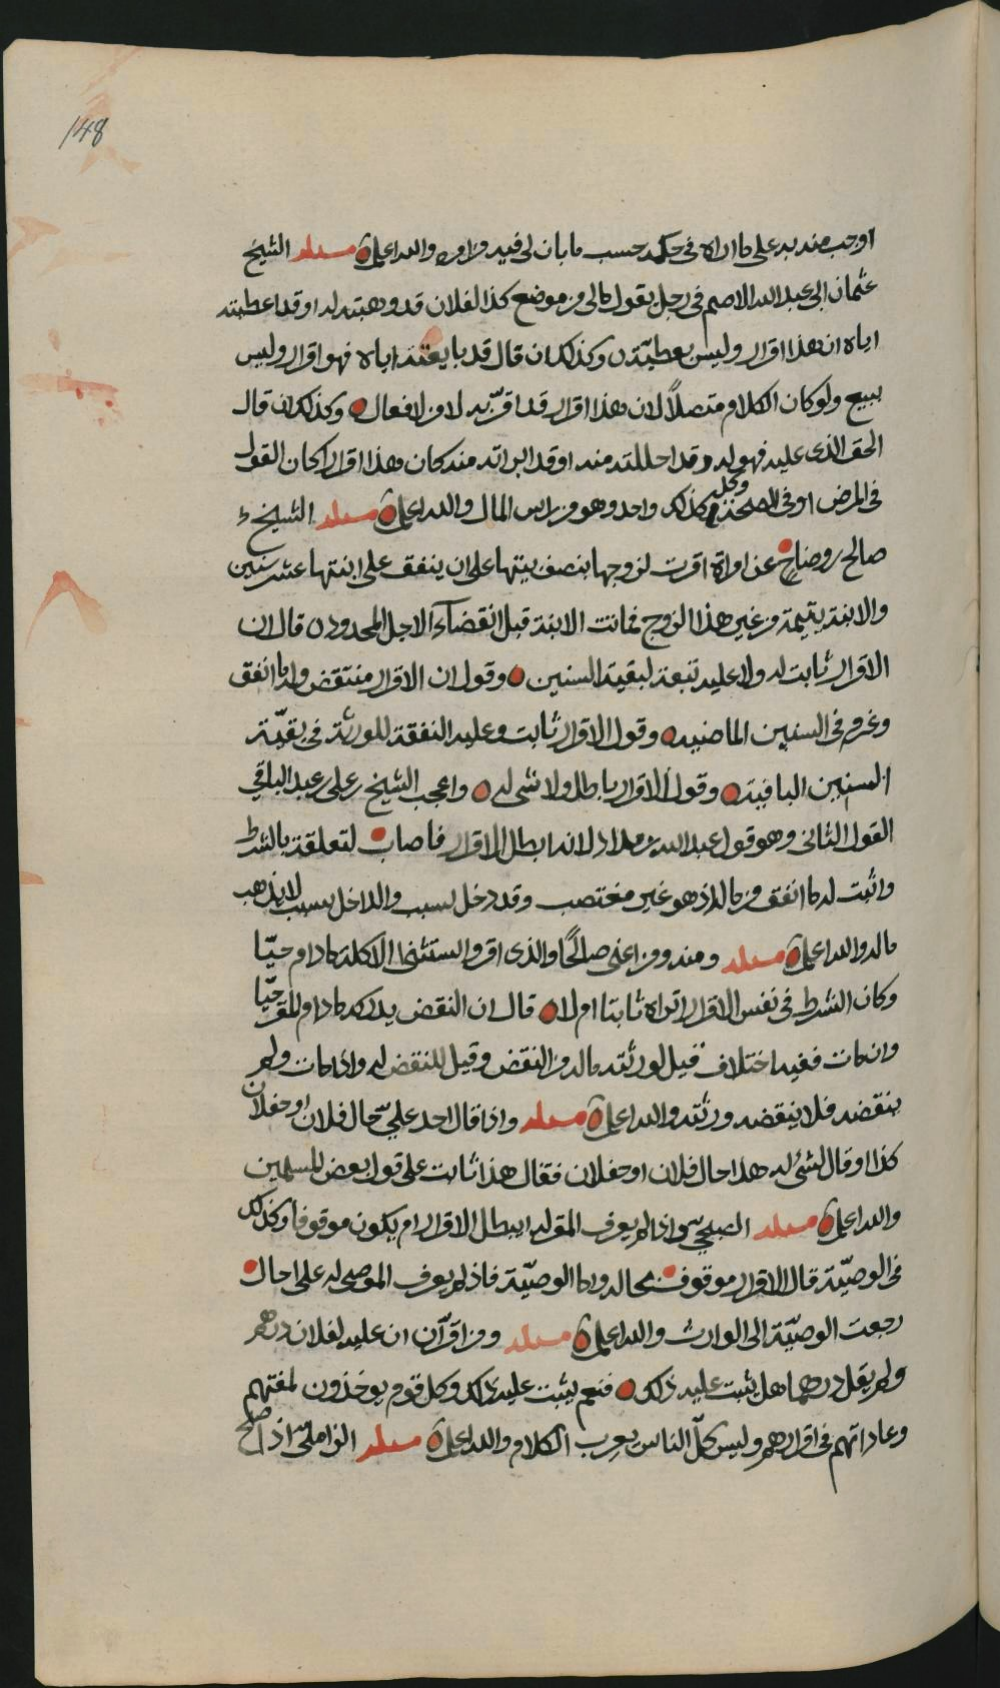 148
اوجب منه به على ما اراه في حكمه حسب ما بان لي فيه من امره والله اعلم مسئلة الشيخ
عثمان ابي عبدالله الاصم في رجل يقول مالي من موضع كذا لفلان قد وهبته له او قد اعطيته
اياه ان هذا اقرار وليس بعطية وكذلك ان قال قد بايعته اياه فهو اقرار وليس
ببيع ولو كان الكلام متصلاً لان هذا اقرار قد اقرّ به لا من الافعال وكذلك ان قال
الحق الذي عليه فهو له وقد احللته منه او قد ابراته منه كان هذا اقرار كان القول
في المرض او في الصحة وكله كذلك واحد وهو من راس المال والله اعلم مسئلة الشيخ
صالح بن وضاح عن امراة اقرت لزوجها بنصف بيتها على ان ينفق على ابنتها عشر سنين
والابنة يتيمة من غير هذا الزوج فماتت الابنة قبل انقضآء الاجل المحدود قال ان
الاقرار ثابت له ولا عليه تبعة لبقية السنين وقول ان الاقرار منتقض وله ما انفق
وغرم في السنين الماضيه وقول الاقرار ثابت وعليه النفقة للورثة في بقيّة
السنين الباقية وقول الاقرار باطل ولا شي له واعجب الشيخ علي بن عبدالباقي
القول الثاني وهو قول عبدالله بن مداد لانه ابطل الاقرار فاصاب لتعلقه بالشرط
واثبت له ما انفق من ماله اذ هو غير مغتصب وقد دخل بسبب والداخل بسبب لا يذهب
ماله والله اعلم مسئلة ومنه ومن اعني صالحًا والذي اقر واستثنى الاكلة ما دام حيّا
وكان الشرط في نفس الاقرار اتراه ثابتا ام لا قال ان النقض يدركه ما دام المقر حيّا
وان مات ففيه اختلاف قيل لورثته ماله من النقض وقيل للنقض له واذا مات ولم
ينقضه فلا ينقضه ورثته والله اعلم مسئلة واذا قال احد عليّ حال فلان او حفلان
كذا او قال لشي له هذا حال فلان او حفلان فقال هذا ثابت على قول بعض المسلمين
والله اعلم مسئلة الصبحي واذا لم يعرف المقر له ايبطل الاقرار ام يكون موقوفا وكذلك
في الوصيّة قال الاقرار موقوف بحاله واما الوصيّة فاذا لم يعرف الموصى له على حال
رجعت الوصيّة الى الوارث والله اعلم مسئلة ومن اقرّ ان عليه لفلان درهم
ولم يقل درهما هل يثبت عليه ذلك فنعم يثبت عليه ذلك وكل قوم يوخذون بلغتهم
وعاداتهم في اقرارهم وليس كلّ الناس يعرب الكلام والله اعلم مسئلة الزاملي اذا صح